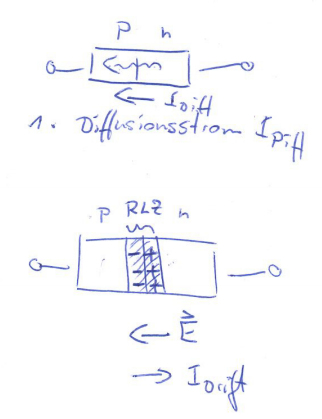 p n
← I_Diff
1. Diffusionsstrom I_Diff
p RLZ n
- +
- +
- +
← E⃗
→ I_Drift